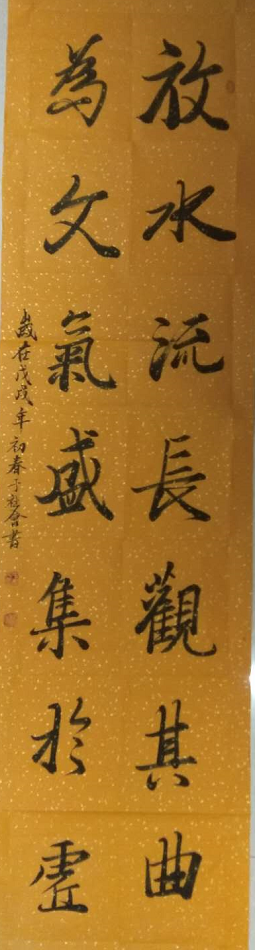 放水流長觀其曲
為文氣盛集於虛
歲在戊戌年初春于